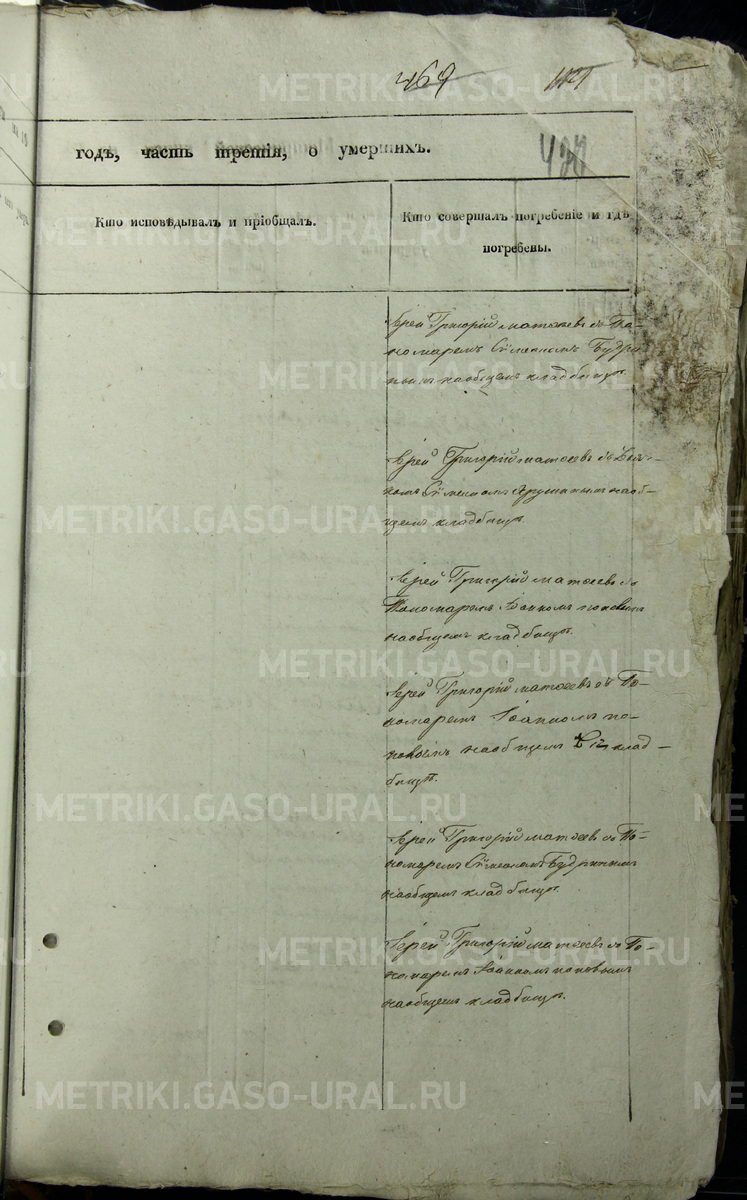 469
годъ, часть третія, о умершихъ.
Кто исповѣдывалъ и пріобщалъ.
Кто совершалъ погребеніе и гдѣ
погребены.
Іерей Григорій Матѳеевъ съ По-
номаремъ Сѵмеономъ Будри
нымъ на общемъ кладбищѣ.
Іерей Григорій Матѳеевъ съ
Сѵмеономъ на об-
щемъ кладбищѣ.
Іерей Григорій Матѳеевъ съ
Пономаремъ Іоанномъ Поповымъ
на общемъ кладбищѣ.
Іерей Григорій Матѳеевъ съ По-
номаремъ Іоанномъ По-
повымъ на общемъ клад-
бищѣ.
Іерей Григорій Матѳеевъ съ По-
номаремъ Сѵмеономъ Будринымъ
на общемъ кладбищѣ.
Іерей Григорій Матѳеевъ съ По-
номаремъ Іоанномъ Поповымъ
на общемъ кладбищѣ.
METRIKI.GASO-URAL.RU